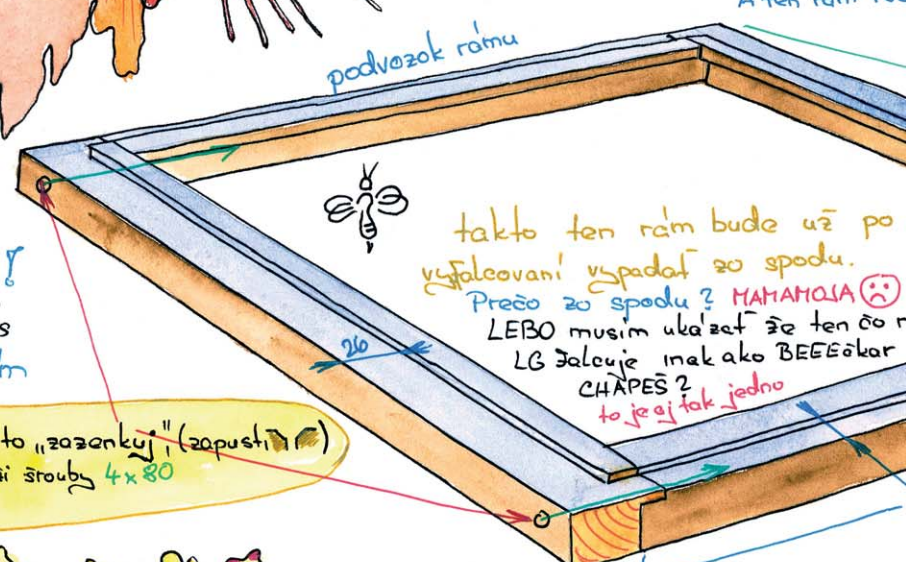 A ten rám
podvozok rámu
takto ten rám bude už po
vyfalcovaní vypadať zo spodu.
Prečo zo spodu? MAMAMOJA
LEBO musím ukázať že ten čo
LG falcuje inak ako BEEEčkar
CHÁPEŠ?
to je aj tak jedno
26
to „zazenkuj" (zapusti)
šrouby 4x80